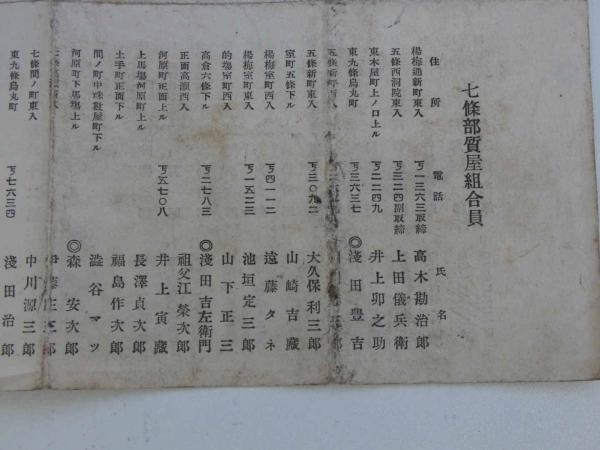 七條部質屋組合員
住所 電話 氏名
楊梅通新町東入 丂一三六三取締 高木勘治郎
五條西洞院東入 丂三二四副取締 上田儀兵衛
東木屋町上ノ口上ル 丂二二四九 井上卯之助
東九條烏丸町 丂三六三七 ◎淺田豊吉
五條新町西入
五條新町東入 丂三〇九二 大久保利三郎
室町五條下ル 山崎吉藏
楊梅室町東入 丂四一一二 遠藤タネ
楊梅室町西入 丂一五二三 池垣定三郎
的場室町西入 山下正三
高倉六條下ル 丂二七八三 ◎淺田吉左衛門
正面高瀬西入 祖父江榮次郎
河原町正面上ル 丂五七〇八 井上寅藏
上馬場河原町上ル 長澤貞次郎
土手町正面下ル 福島作次郎
間ノ町中珠數屋町下ル 澁谷マツ
河原町下馬場上ル ◎森安次郎
七條間ノ町東入 中川源三郎
東九條烏丸町 丂七六三四 淺田治郎